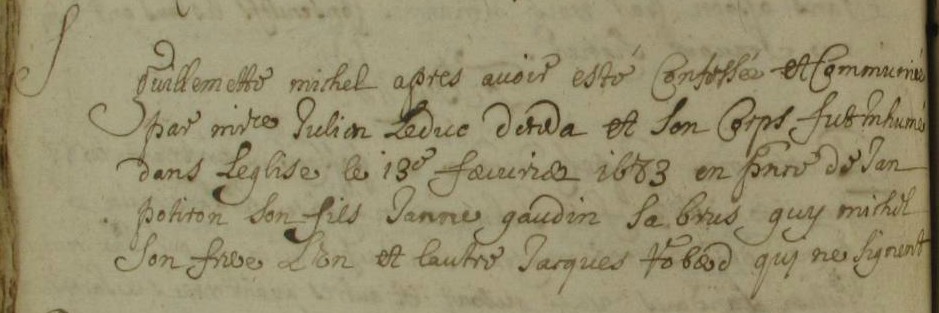 S
Guillemette michel apres avoir esté Confessée et Communiée
par mire Julien Leduc deceda et son Corps fut inhumé
dans Leglise le 13e feuurier 1683 en pnce de Jan
potiron son fils Janne gaudin sa brus guy michel
son frere Lon et lautre Jacques qui ne signent